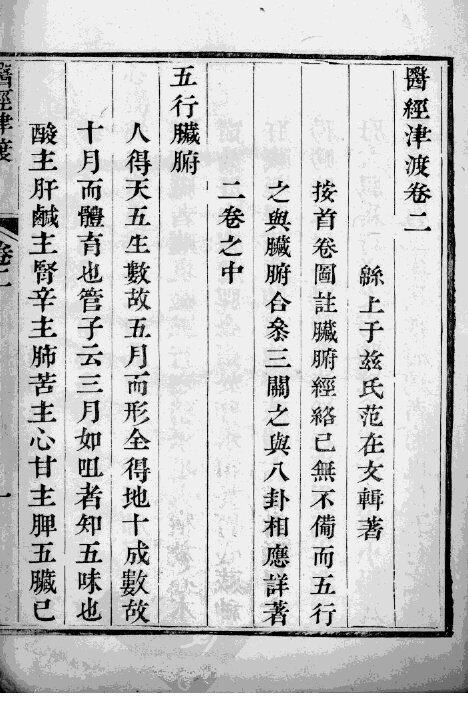 醫經津渡卷二
緜上于茲氏范在文輯著
按首卷圖註臟腑經絡已無不備而五行
之與臟腑合叅三關之與八卦相應詳著
二卷之中
五行臟腑
人得天五生數故五月而形全得地十成數故
十月而體育也管子云三月如咀咀者知五味也
酸主肝鹹主腎辛主肺苦主心甘主脾五臟已
醫經津渡
卷二
一